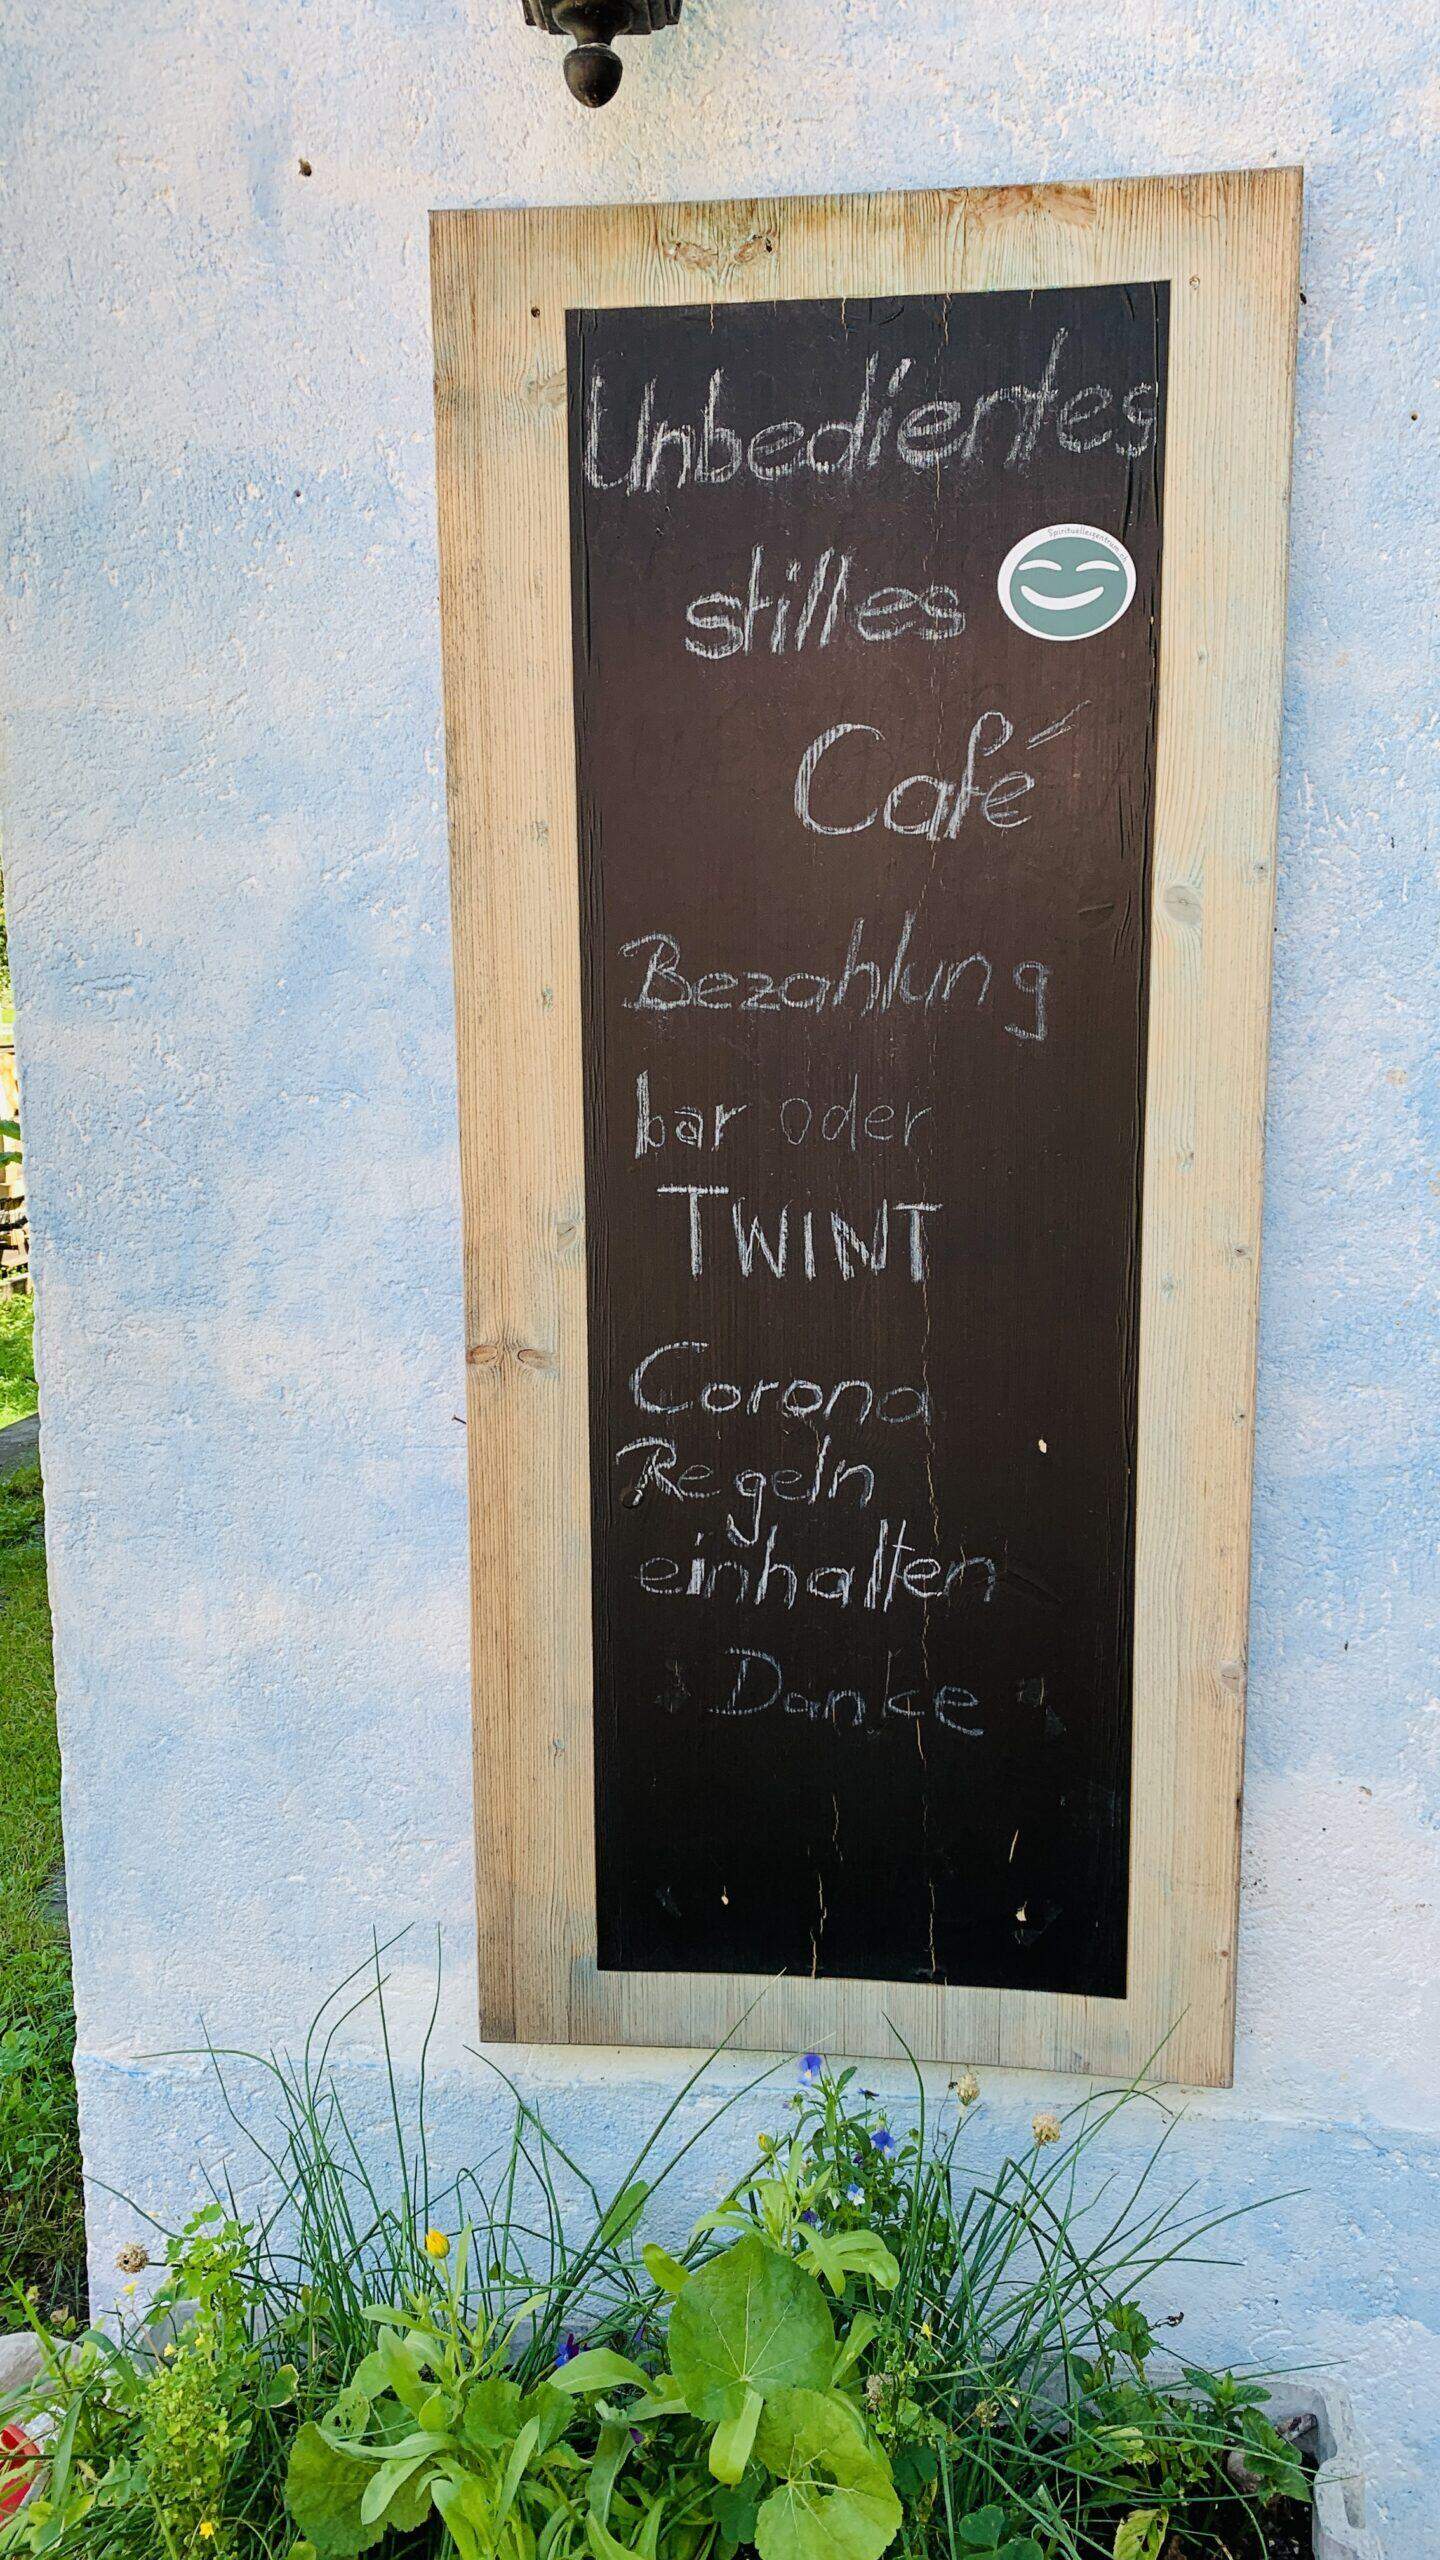 Unbedientes
Spirituelleszentrum.ch
stilles
Café
Bezahlung
bar oder
TWINT
Corona
Regeln
einhalten
Danke